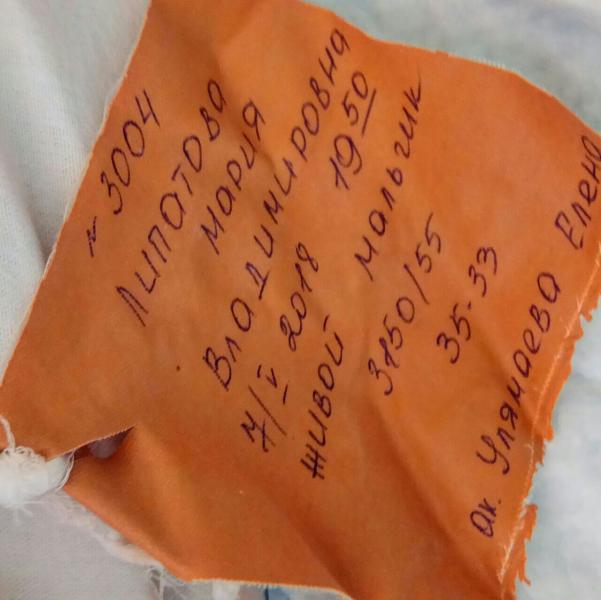 № 3004
ЛИПАТОВА
МАРИЯ
ВЛАДИМИРОВНА
7/V 2018 19 50
ЖИВОЙ МАЛЬЧИК
3150/55
35-33
ак. Улямаева Елена